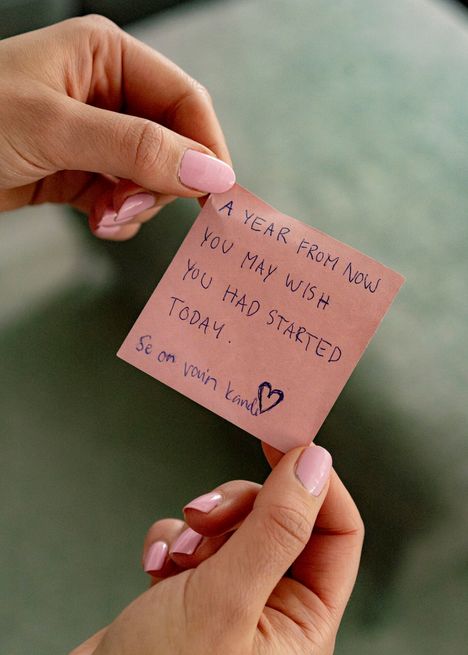 A YEAR FROM NOW
YOU MAY WISH
YOU HAD STARTED
TODAY.
Se on